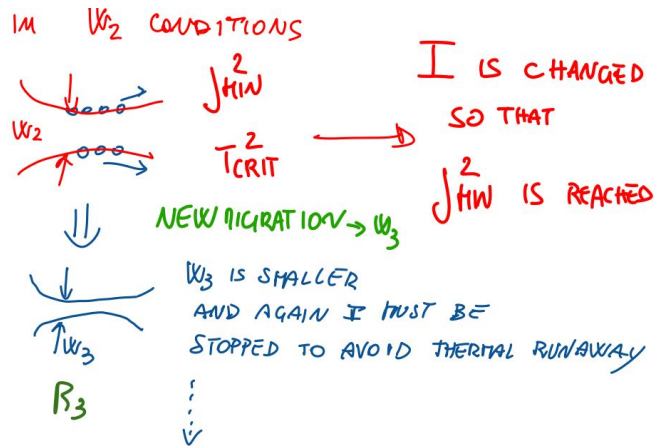 IN W₂ CONDITIONS
J²MIN
I IS CHANGED
SO THAT
W₂
T²CRIT
J²MIN IS REACHED
NEW MIGRATION → W₃
W₃ IS SMALLER
AND AGAIN I MUST BE
W₃
STOPPED TO AVOID THERMAL RUNAWAY
R₃